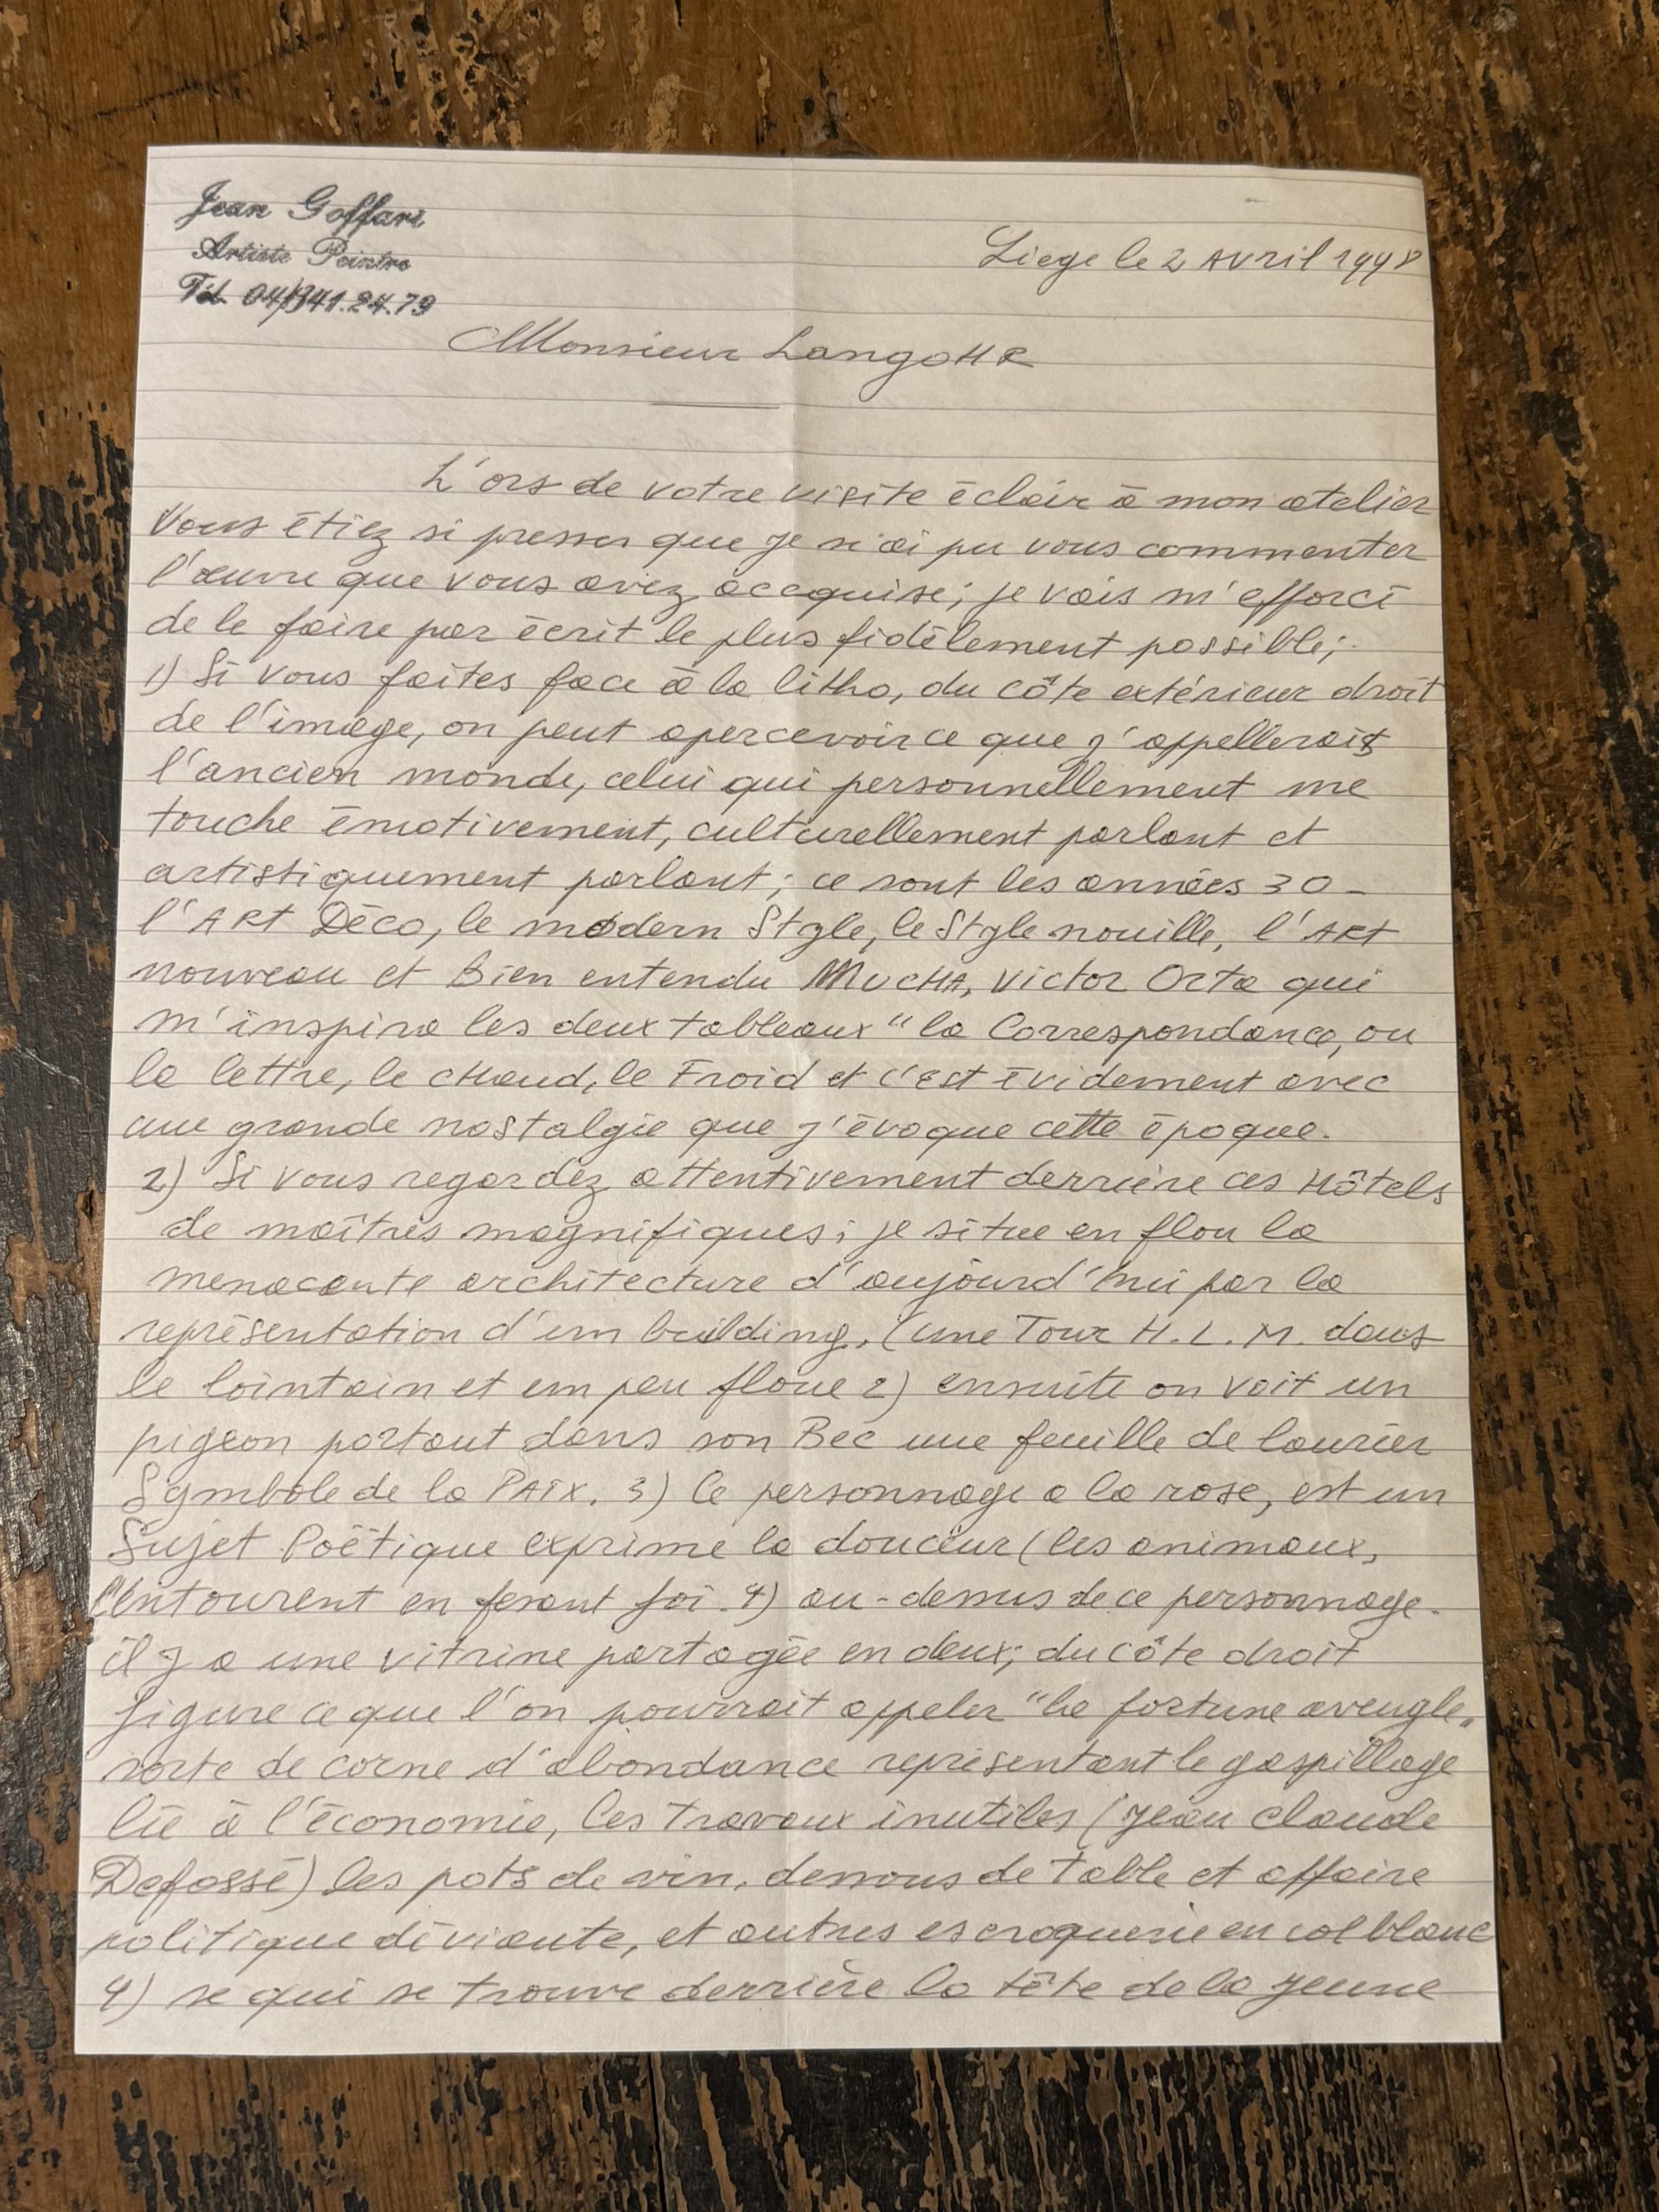 Jean Goffart
Artiste Peintre
Tél. 04/341.24.79
Liege le 2 Avril 1998
Monsieur LangoHR
L'ors de votre visite éclair à mon atelier
Vous étiez si presser que je n'ai pu vous commenter
l'œuvre que vous avez accquise; je vais m'efforcé
de le faire par écrit le plus fidèlement possible;
1) Si vous faites face à la litho, du côte extérieur droit
de l'image, on peut apercevoir ce que j'appellerais
l'ancien monde, celui qui personnellement me
touche émotivement, culturellement parlant et
artistiquement parlant; ce sont les années 30 -
l'ART Déco, le modern Style, le Style nouille, l'ART
nouveau et Bien entendu MUCHA, Victor Orta qui
m'inspira les deux tableaux "la Correspondance, ou
la lettre, le cHaud, le Froid et c'est évidement avec
une grande nostalgie que j'évoque cette époque.
2) Si vous regardez attentivement derrière ces Hôtels
de maîtres magnifiques; je situe en flou la
menacante architecture d'aujourd'hui par la
représentation d'un building, (une Tour H.L.M. dans
le lointain et un peu floue 2) ensuite on voit un
pigeon portant dans son Bec une feuille de laurier
Symbole de la PAIX. 3) Ce personnage a la rose, est un
Sujet Poëtique exprime la douceur (les animaux,
l'entourent en fesant foi. 4) au-dessus de ce personnage.
il y a une vitrine partagée en deux; du côte droit
figure ce que l'on pourrait appeler "La fortune aveugle"
sorte de corne d'abondance représentant le gaspillage
lié à l'économie, les travaux inutiles (Jean Claude
Defossé) les pots de vin, dessous de table et affaire
politique déviante, et autres escroquerie en col blanc
4) se qui se trouve derrière la tête de la jeune